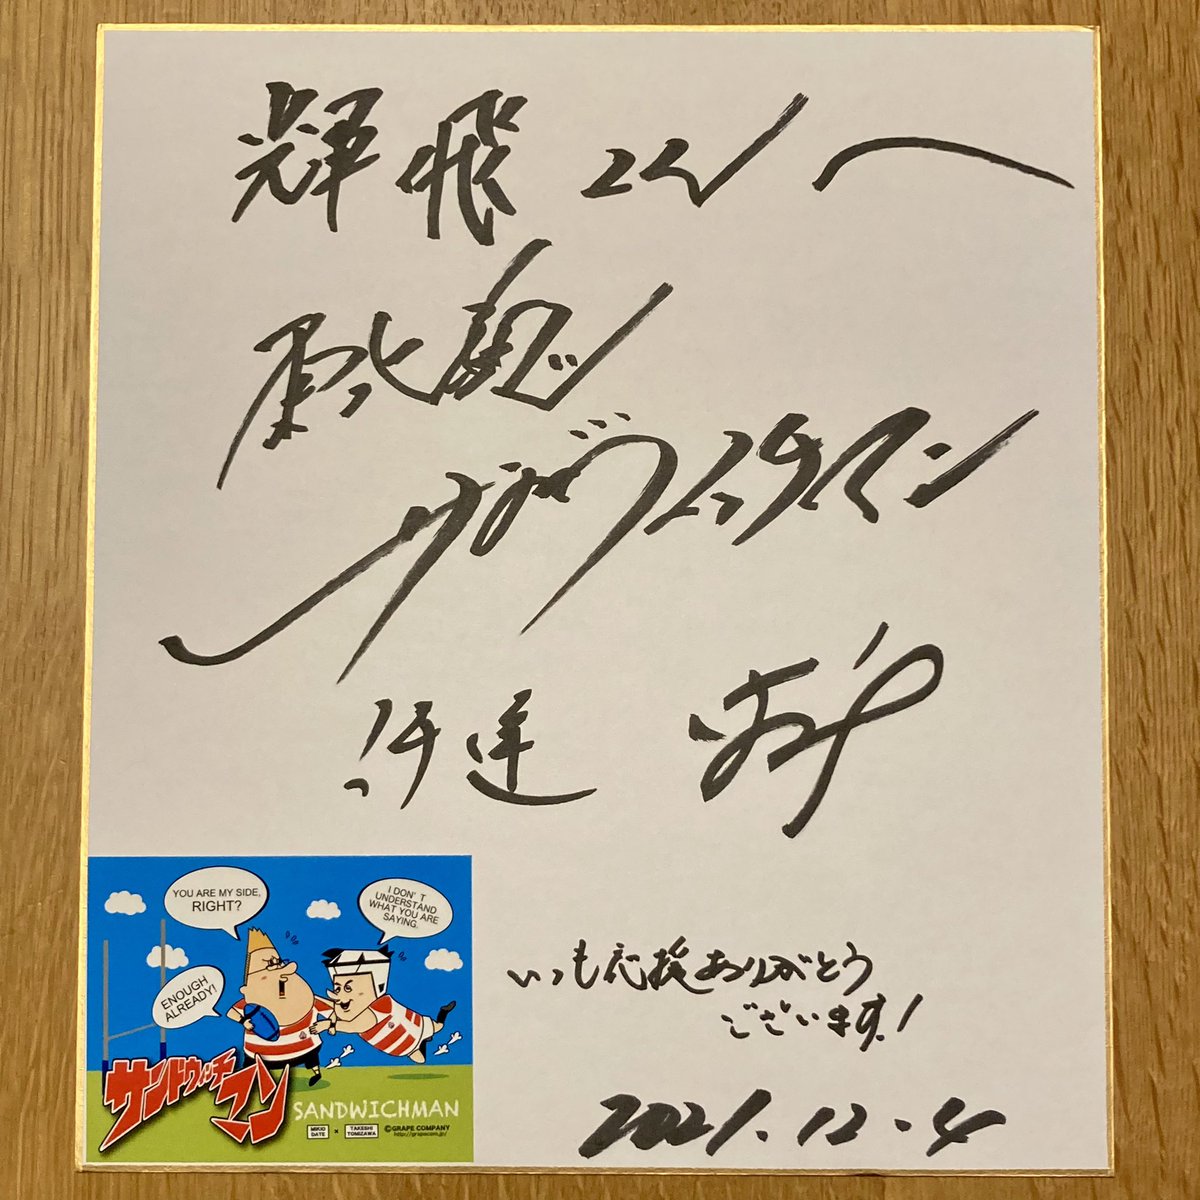 輝飛くんへ
サンドウィッチマン
伊達
いつも応援ありがとう
ございます!
2021.12.4
YOU ARE MY SIDE,
RIGHT?
I DON'T
UNDERSTAND
WHAT YOU ARE
SAYING.
ENOUGH
ALREADY!
サンドウィッチ
マン
SANDWICHMAN
MIKIO
DATE
×
TAKESHI
TOMIZAWA
©GRAPE COMPANY
http://grapecom.jp/